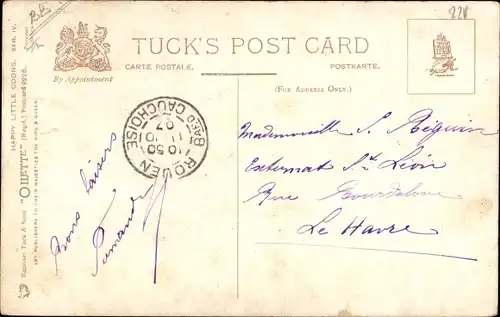 BB
228
TUCK'S POST CARD
CARTE POSTALE.
POSTKARTE.
(FOR ADDRESS ONLY.)
By Appointment
HAPPY LITTLE COONS. SER. IV.
Raphael Tuck & Sons' "OILETTE" [Regd.] Postcard 9228.
ART PUBLISHERS TO THEIR MAJESTIES THE KING & QUEEN.
ROUEN
Bons baisers
Mademoiselle S.
Externat St Léon
Rue Bourdaloue
Le Havre